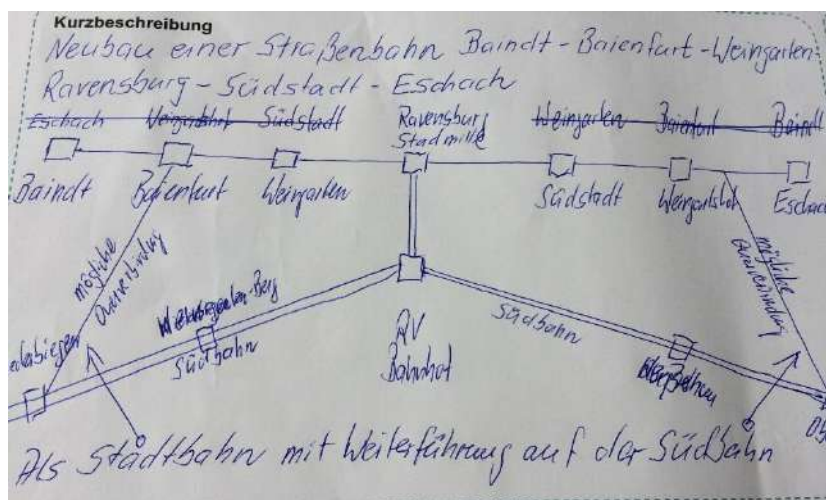 Kurzbeschreibung
Neubau einer Straßenbahn Baindt - Baienfurt - Weingarten-
Ravensburg - Südstadt - Eschach
Eschach Südstadt Ravensburg Weingarten Baienfurt Baindt
Stadtmitte
Baindt Baienfurt Weingarten Südstadt Weingartshof Eschach
mögliche
Querverbindung
mögliche
Querverbindung
Berg
Südbahn
Südbahn
RV
Bahnhof
Als Stadtbahn mit Weiterführung auf der Südbahn